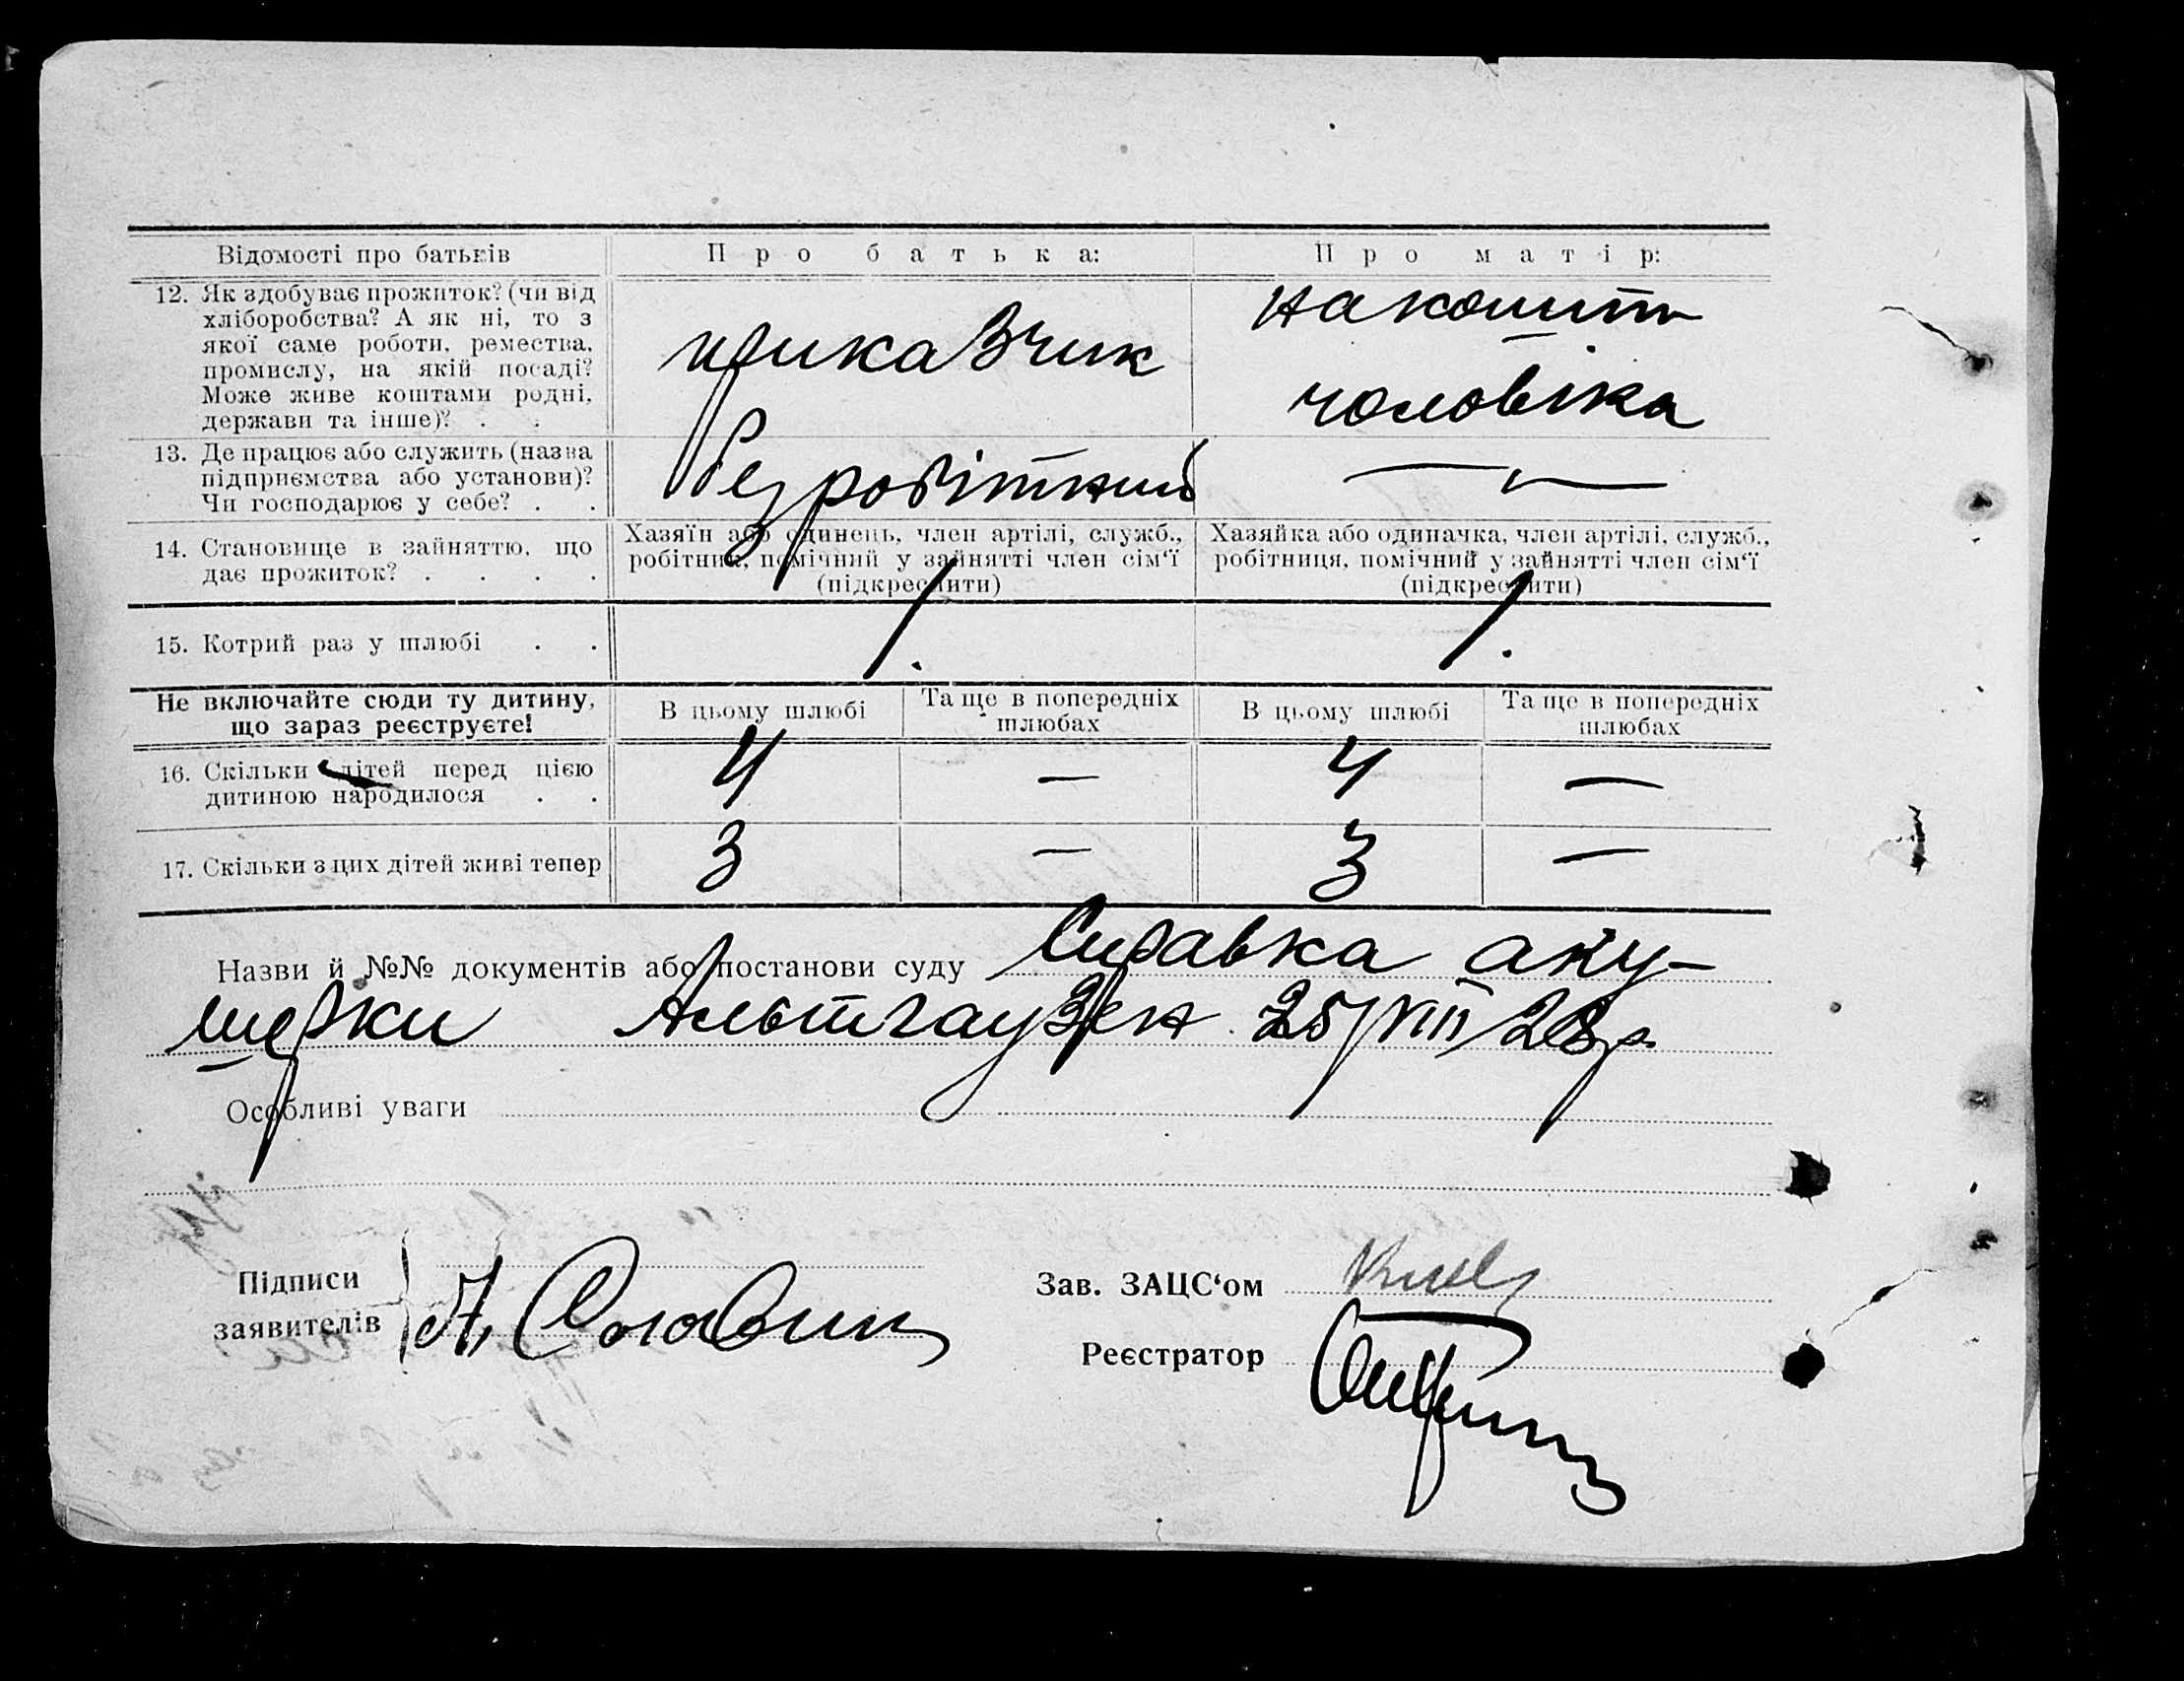 Відомості про батьків
Про батька:
Про матір:
12. Як здобуває прожиток? (чи від
хліборобства? А як ні, то з
якої саме роботи, ремества,
промислу, на якій посаді?
Може живе коштами родні,
держави та інше)? . .
приказчик
на кошти
чоловіка
13. Де працює або служить (назва
підприємства або установи)?
Чи господарює у себе? . .
безробітний
—
14. Становище в зайняттю, що
дає прожиток? . . . .
Хазяїн або одинець, член артілі, служб.,
робітник, помічний у зайнятті член сім‘ї
(підкреслити)
Хазяйка або одиначка, член артілі, служб.,
робітниця, помічний у зайнятті член сім‘ї
(підкреслити)
15. Котрий раз у шлюбі . .
1.
1.
Не включайте сюди ту дитину,
що зараз реєструєте!
В цьому шлюбі
Та ще в попередніх
шлюбах
В цьому шлюбі
Та ще в попередніх
шлюбах
16. Скільки дітей перед цією
дитиною народилося . .
4 — 4 —
17. Скільки з цих дітей живі тепер
3 — 3 —
Назви й №№ документів або постанови суду Справка аку-
шерки Альтгаузен 25/VIII/28р.
Особливі уваги
Підписи
заявителів
А. Славин
Зав. ЗАЦС‘ом
Реєстратор